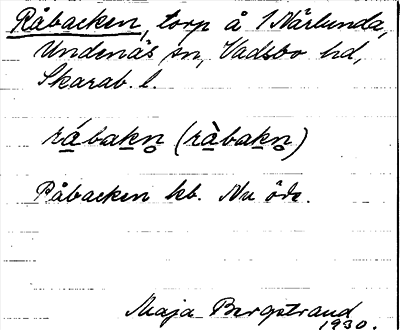 Råbacken, torp å 1 Närlunda,
Undenäs sn, Vadsbo hd,
Skarab. l.
rá̱baḵn̥ (rà̱baḵn̥)
Råbacken kb. Nu öde.
Maja Bergstrand
1930.